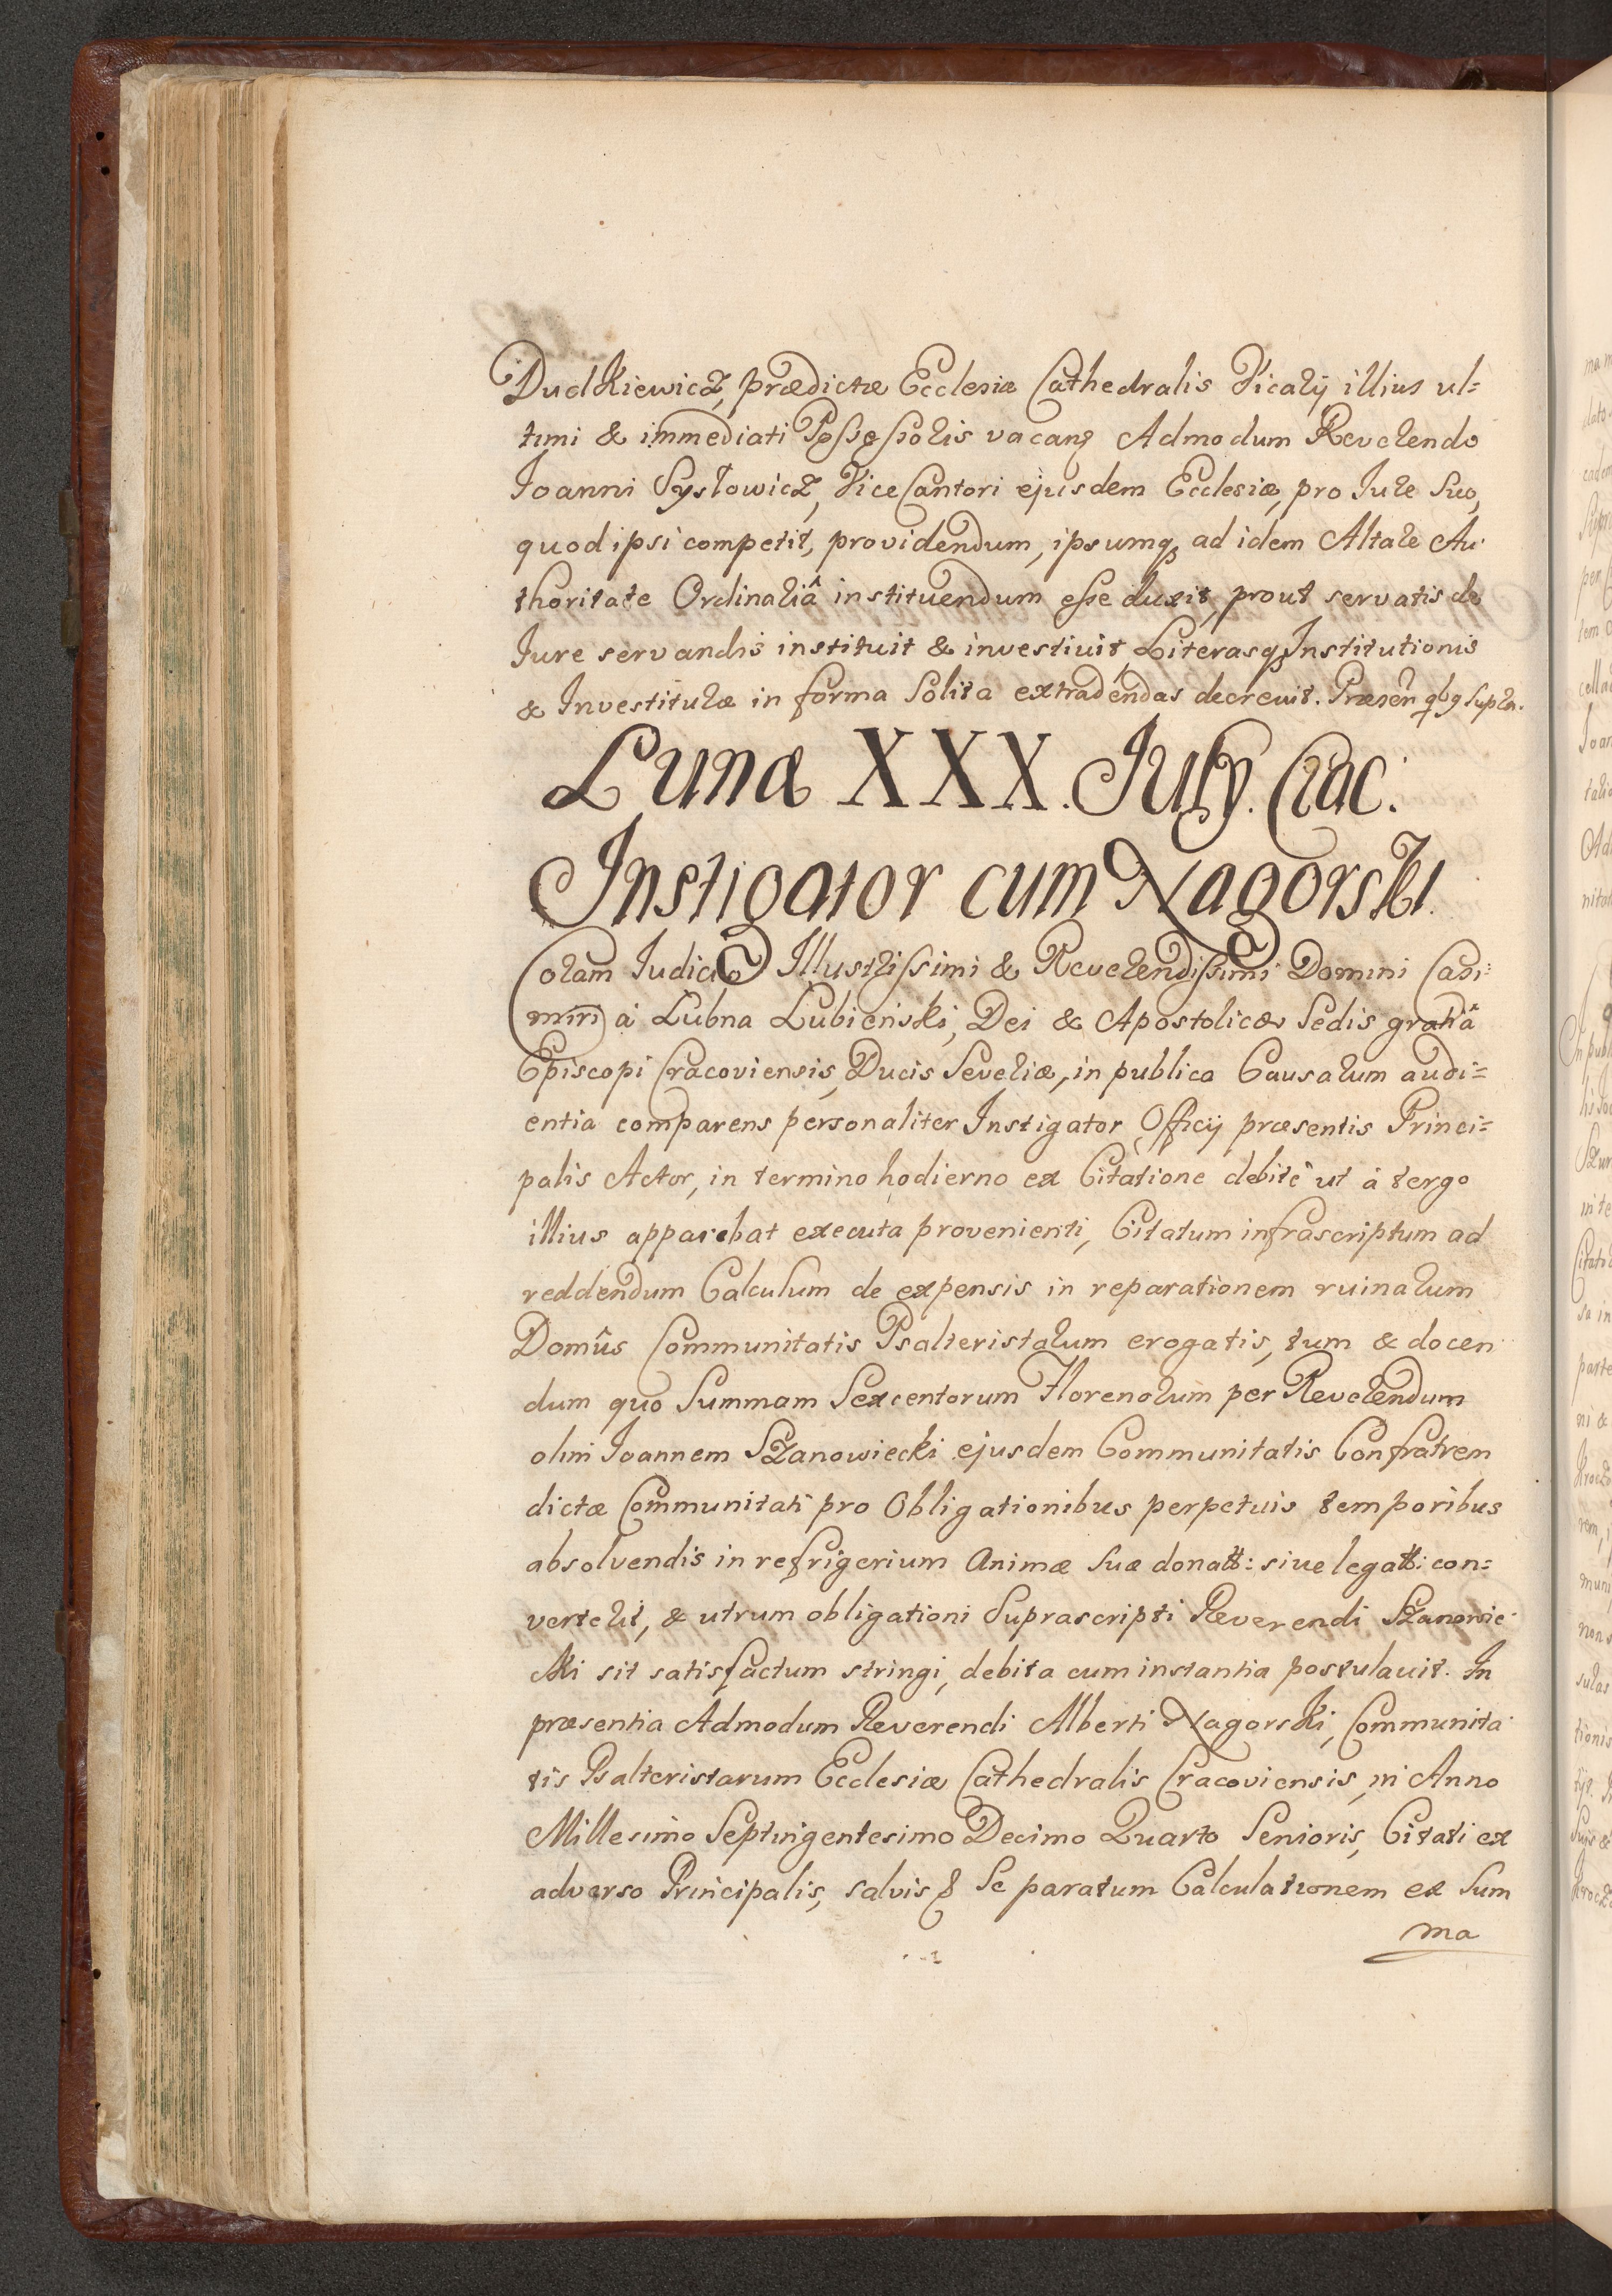 DudKiewicz, prædictæ Ecclesiæ Cathedralis Vicarij illius ul=
timi & immediati Possessoris vacanᵱ Admodum Reverendo
Ioanni Systowicz, ViceCantori ejusdem Ecclesiæ, pro Iure Suo,
quod ipsi competit, providendum, ipsumq; ad idem Altare Au
thoritate Ordinariâ instituendum esse duxit, prout servatis de
Iure servandis instituit & investivit, Literasq; Institutionis
& Investituræ in forma Solita extradendas decrevit. Præsen̄ qbg supra.
Lunæ XXX. July. Crac:
Instigator cum Nagorski.
Coram Iudicio Illustrissimi & Reverendissimi Domini Casi=
miri à Lubna Lubienski, Dei & Apostolicæ Sedis gratiâ
Episcopi Cracoviensis, Ducis Severiæ, in publica Causarum audi=
entia comparens personaliter Instigator Officij præsentis Princi=
palis Actor, in termino hodierno ex Citatione debitè ut à tergo
illius apparebat executa provenienti, Citatum infrascriptum ad
reddendum Calculum de expensis in reparationem ruinarum
Domûs Communitatis Psalteristarum erogatis, tum & docen
dum quo Summam Sexcentorum Florenorum per Reverendum
olim Ioannem Szanowiecki ejusdem Communitatis Confratrem
dictæ Communitati pro Obligationibus perpetuis temporibus
absolvendis in refrigerium Animæ Suæ donatt: sive legatt: con=
verterit, & utrum obligationi Suprascripti Reverendi Szanowie
cki sit satisfactum stringi, debita cum instantia postulavit. In
præsentia Admodum Reverendi Alberti Nagorski, Communita
tis Psalteristarum Ecclesiæ Cathedralis Cracoviensis, in Anno
Millesimo Septingentesimo Decimo Quarto Senioris, Citati ex
adverso Principalis, salvis & Se paratum Calculationem ex Sum
ma